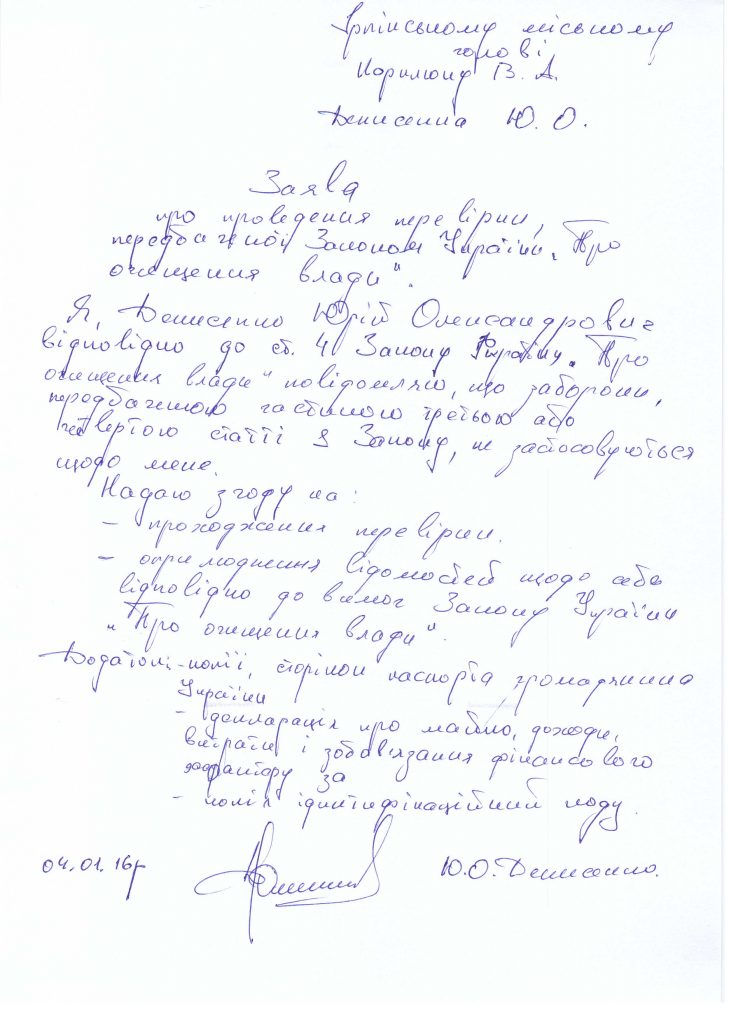 Ірпінському міському
голові
Карплюку В. А.
Денисенка Ю. О.
Заява
про проведення перевірки,
передбаченої Законом України „Про
очищення влади“.
Я, Денисенко Юрій Олександрович
відповідно до ст. 4 Закону України „Про
очищення влади“ повідомляю, що заборони,
передбаченою частиною третьою або
четвертою статті 1 Закону, не застосовуються
щодо мене.
Надаю згоду на:
– проходження перевірки.
– оприлюднення відомостей щодо себе
відповідно до вимог Закону України
„Про очищення влади“.
Додатки: – копії, сторінок паспорта громадянина
України
– декларація про майно, доходи,
витрати і зобов'язання фінансового
характеру за
– копія ідентифікаційний коду.
04.01.16р
Ю.О. Денисенко.